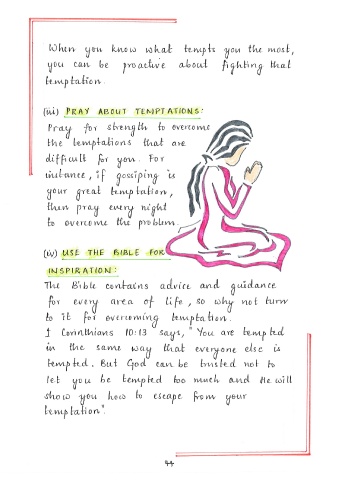 When you know what tempts you the most,
you can be proactive about fighting that
temptation.
(iii) PRAY ABOUT TEMPTATIONS:
Pray for strength to overcome
the temptations that are
difficult for you. For
instance, if gossiping is
your great temptation,
then pray every night
to overcome the problem.
(iv) USE THE BIBLE FOR
INSPIRATION:
The Bible contains advice and guidance
for every area of life, so why not turn
to it for overcoming temptation.
1 Corinthians 10:13 says, "You are tempted
in the same way that everyone else is
tempted. But God can be trusted not to
let you be tempted too much and He will
show you how to escape from your
temptation".
44